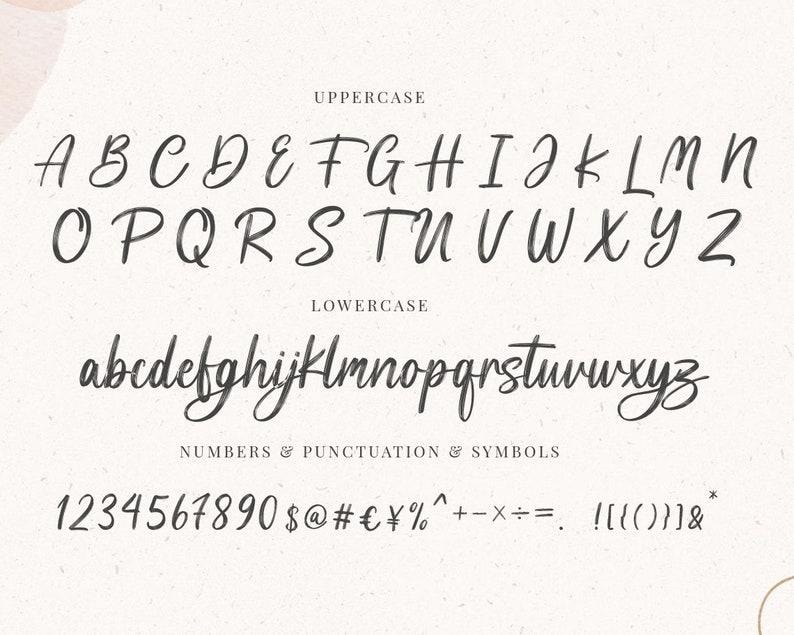 UPPERCASE
A B C D E F G H I J K L M N
O P Q R S T U V W X Y Z
LOWERCASE
abcdefghijklmnopqrstuvwxyz
NUMBERS & PUNCTUATION & SYMBOLS
1234567890 $@#€¥%^+-×÷=. ![{()}]&*